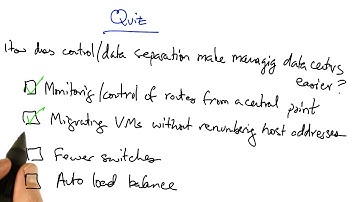 Quiz
How does control/data separation make managing data centers
easier?
Monitoring/control of routes from a central point
Migrating VMs without renumbering host addresses
Fewer switches
Auto load balance